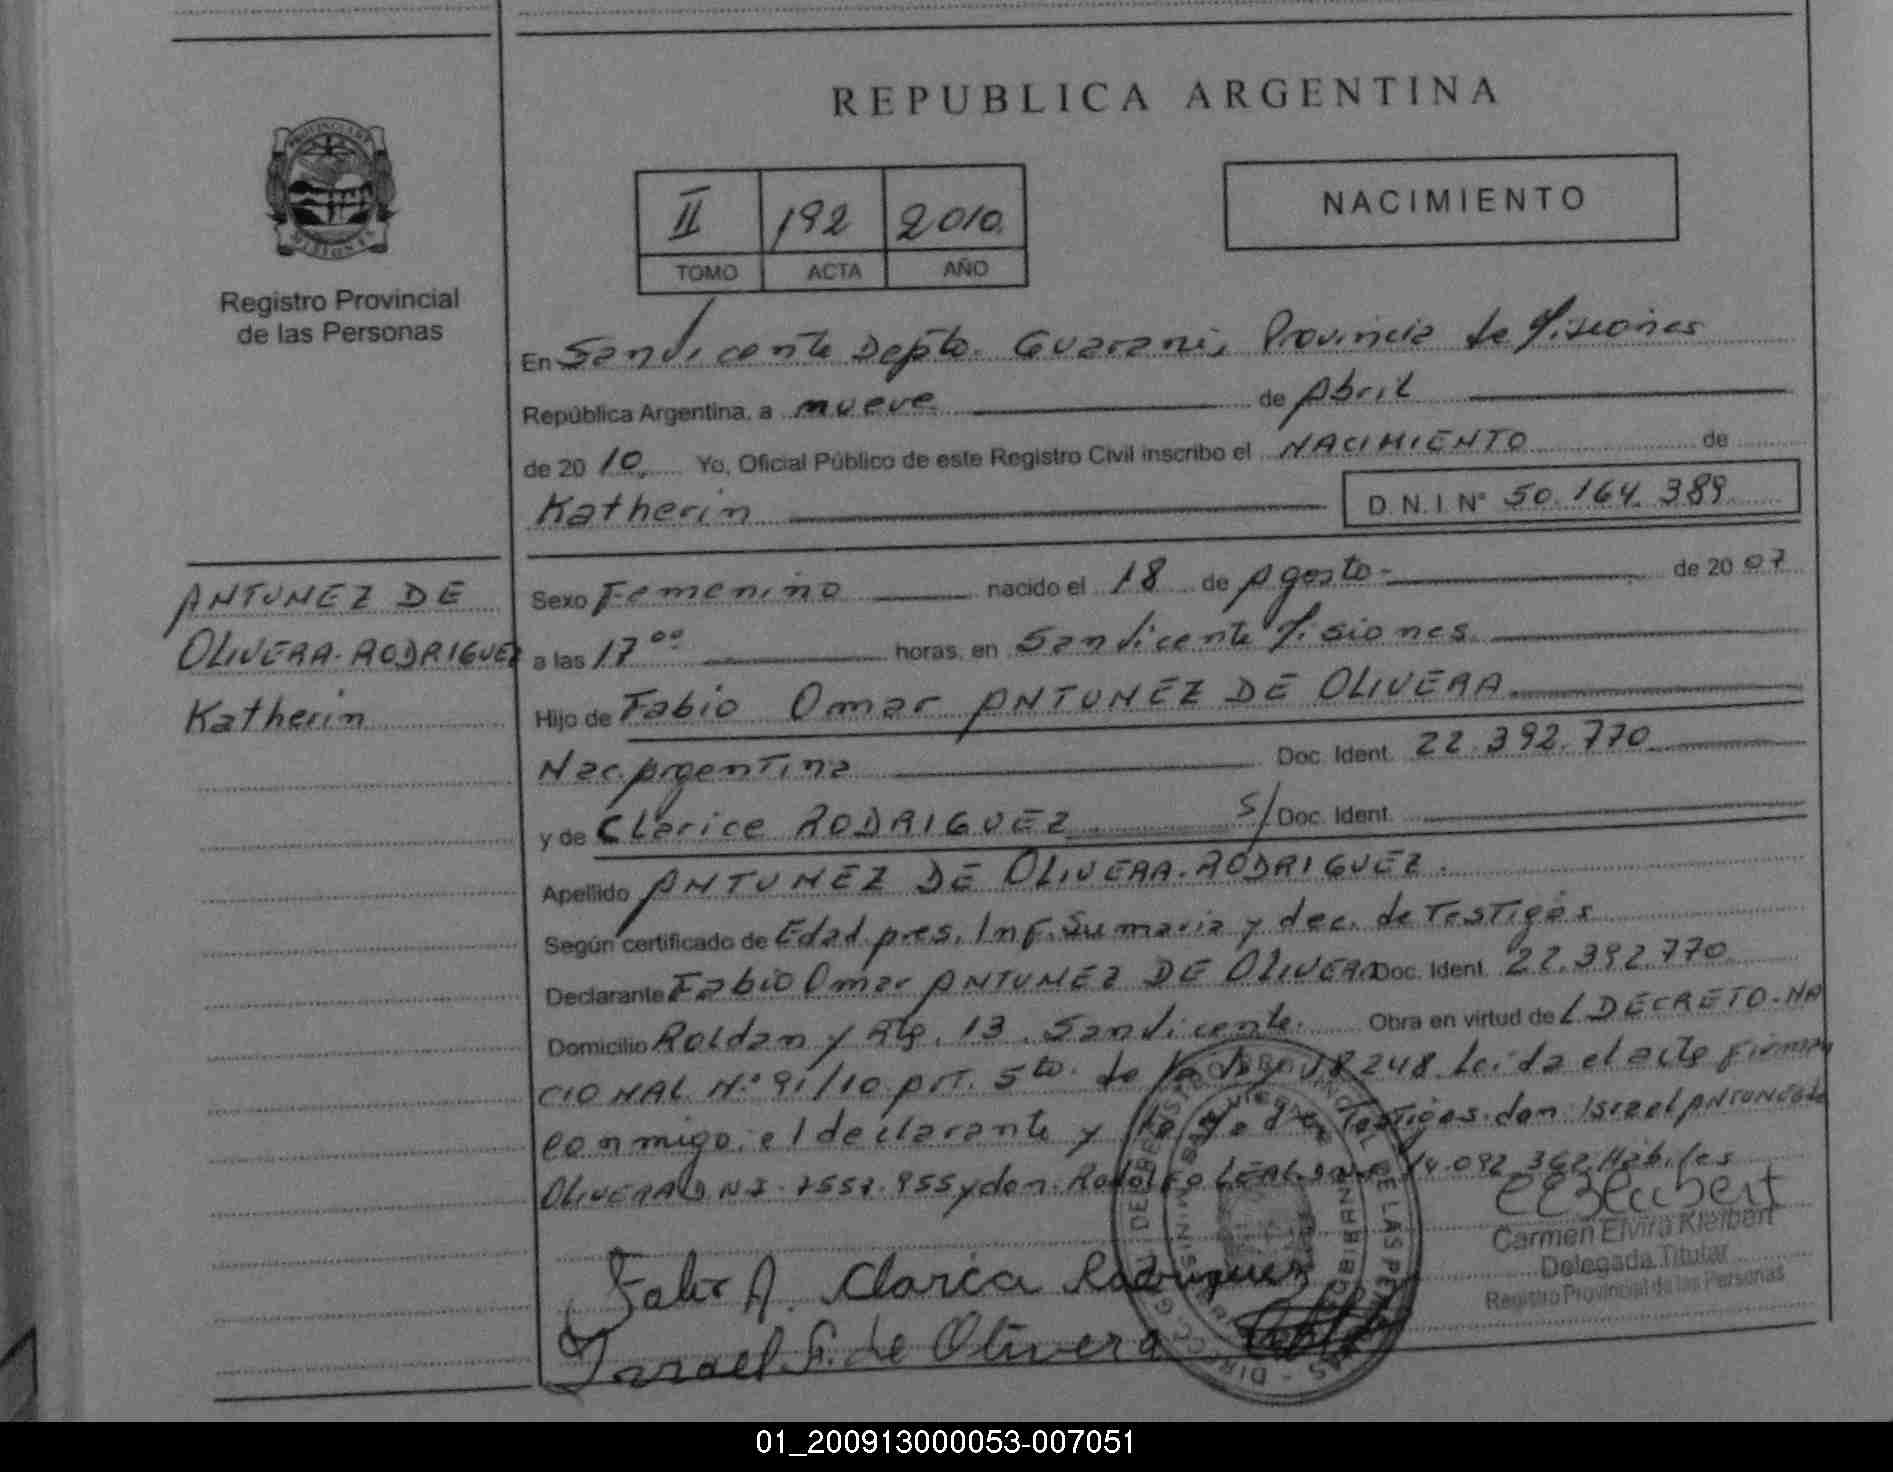 REPUBLICA ARGENTINA
PROVINCIA DE
MISIONES
Registro Provincial
de las Personas
II 192 2010
TOMO ACTA AÑO
NACIMIENTO
En San Vicente Depto. Guarani, Provincia de Misiones
República Argentina, a nueve de Abril
de 2010. Yo, Oficial Público de este Registro Civil inscribo el NACIMIENTO de
Katherin D.N.I. N° 50.164.389
ANTUNEZ DE
OLIVERA-RODRIGUEZ
Katherin
Sexo Femenino nacido el 18 de Agosto- de 2007
a las 17⁰⁰ horas, en San Vicente Misiones
Hijo de Fabio Omar ANTUNEZ DE OLIVERA
Nac. Argentina Doc. Ident. 22.392.770
y de Clarice RODRIGUEZ S/ Doc. Ident.
Apellido ANTUNEZ DE OLIVERA-RODRIGUEZ.
Según certificado de Edad pres. Inf. Sumaria y dec. de Testigos
Declarante Fabio Omar ANTUNEZ DE OLIVERA Doc. Ident. 22.392.770
Domicilio Roldan y Alg. 13. San Vicente. Obra en virtud de L DECRETO-NA
CIONAL N.° 91/10 Art. 5to. de la Ley 18248 Leida el acta firman
conmigo, el declarante y Testigos don Israel ANTUNEZ de
OLIVERA DNI. 7557.955 y don Rodolfo LEAL DNI. 14.092.362 Hábiles
Carmen Elvira Kleibert
Delegada Titular
Registro Provincial de las Personas
Fabio A. Clarica Rodriguez
Israel A. de Olivera
01_200913000053-007051